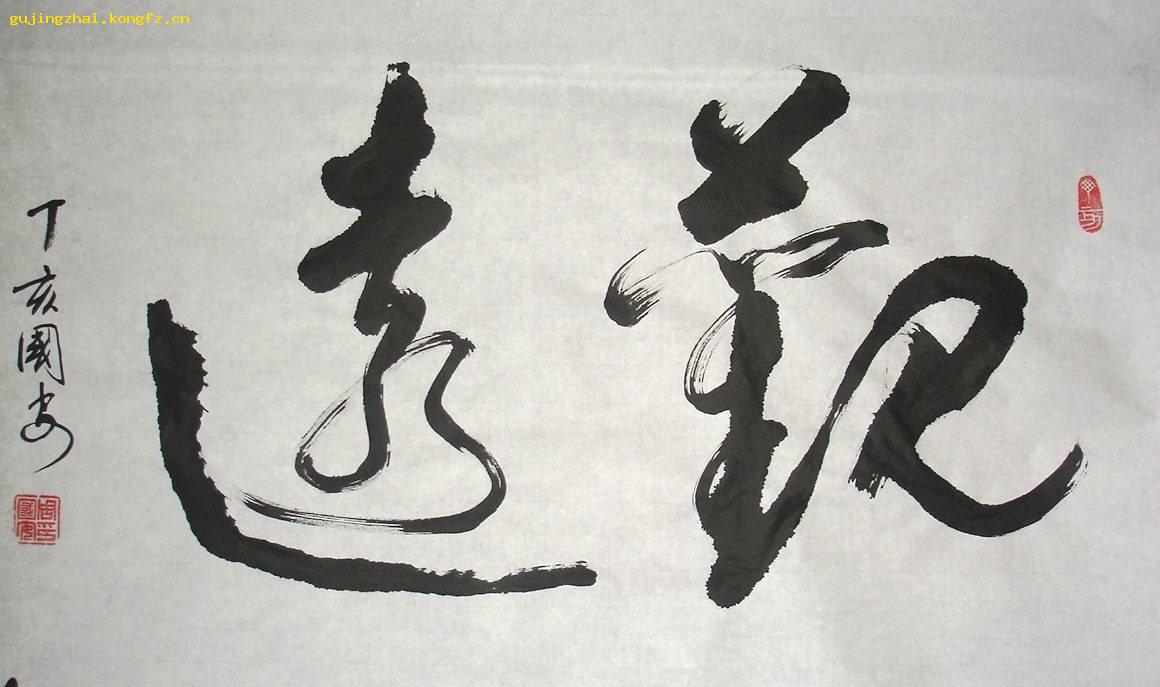 gujingzhai.kongfz.cn
觀遠
丁亥國安